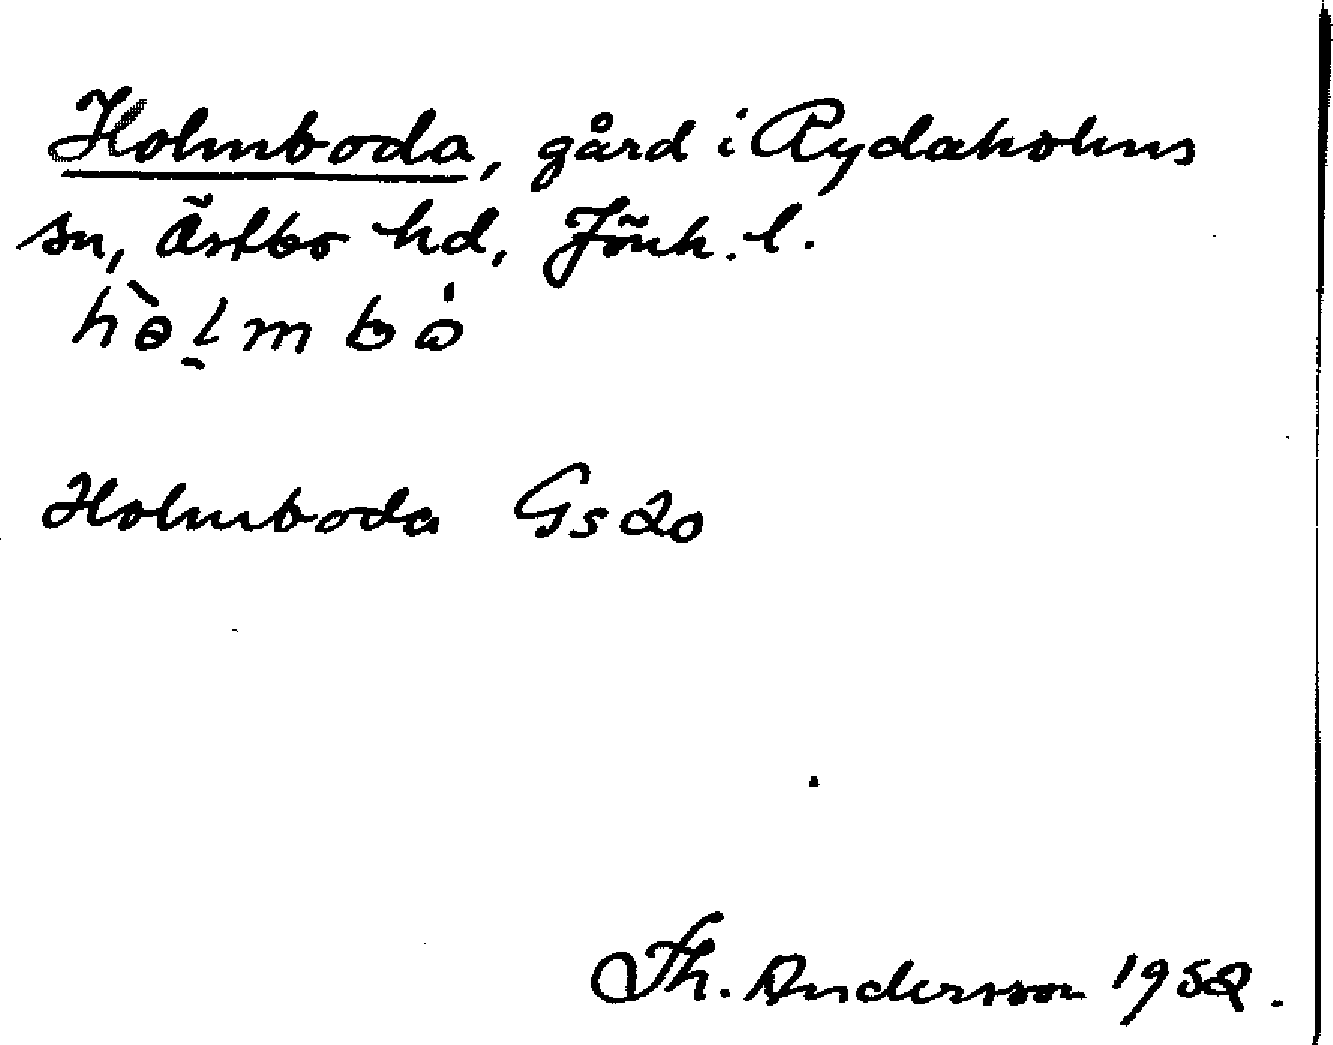 Holmboda, gård i Rydaholms
sn, Östbo hd, Jönk. l.
Holmboda Gs 20
Th. Andersson 1952.